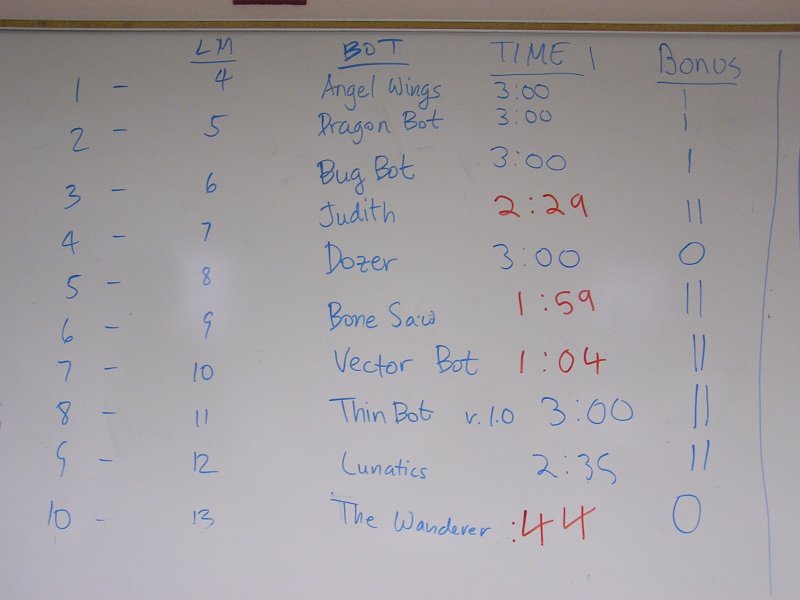 LM BOT TIME 1 Bonus
1 - 4 Angel Wings 3:00 |
2 - 5 Dragon Bot 3:00 |
3 - 6 Bug Bot 3:00 |
4 - 7 Judith 2:29 ||
5 - 8 Dozer 3:00 0
6 - 9 Bone Saw 1:59 ||
7 - 10 Vector Bot 1:04 ||
8 - 11 Thin Bot v.1.0 3:00 ||
9 - 12 Lunatics 2:35 ||
10 - 13 The Wanderer :44 0